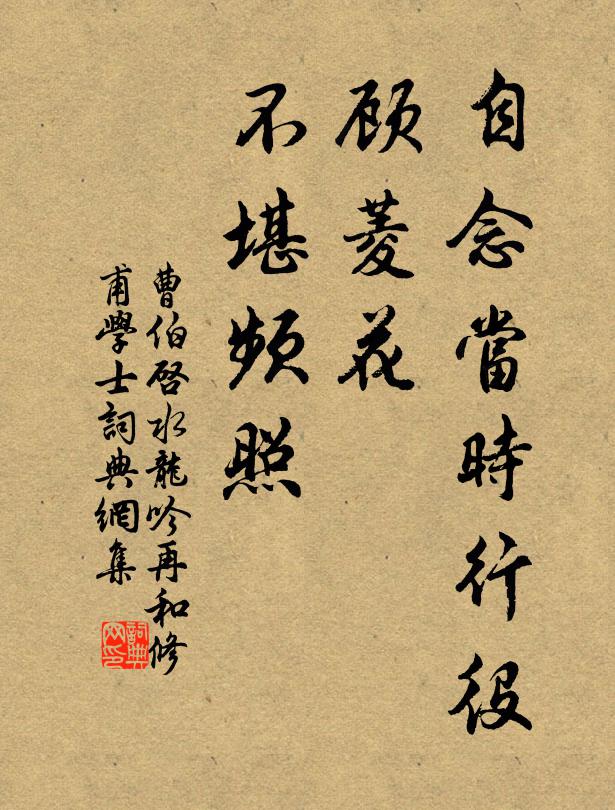 自念當時行役
顾菱花
不堪频照
曹伯啓水龍吟再和修
甫學士詞典網集
詞典
网印